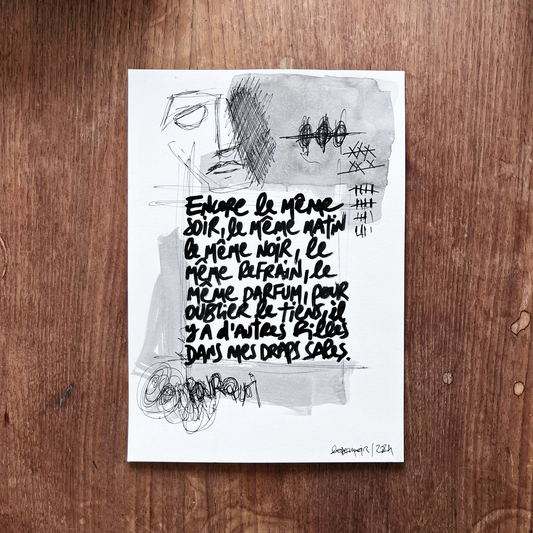 ENCORE le même
SOIR, le même MATIN
le même NOIR, le
même REFRAIN, le
même PARFUM, POUR
OUBLIER le tiens, il
Y A d'AUTRES filles
DANS MES DRAPS SALES.
POURQUOI